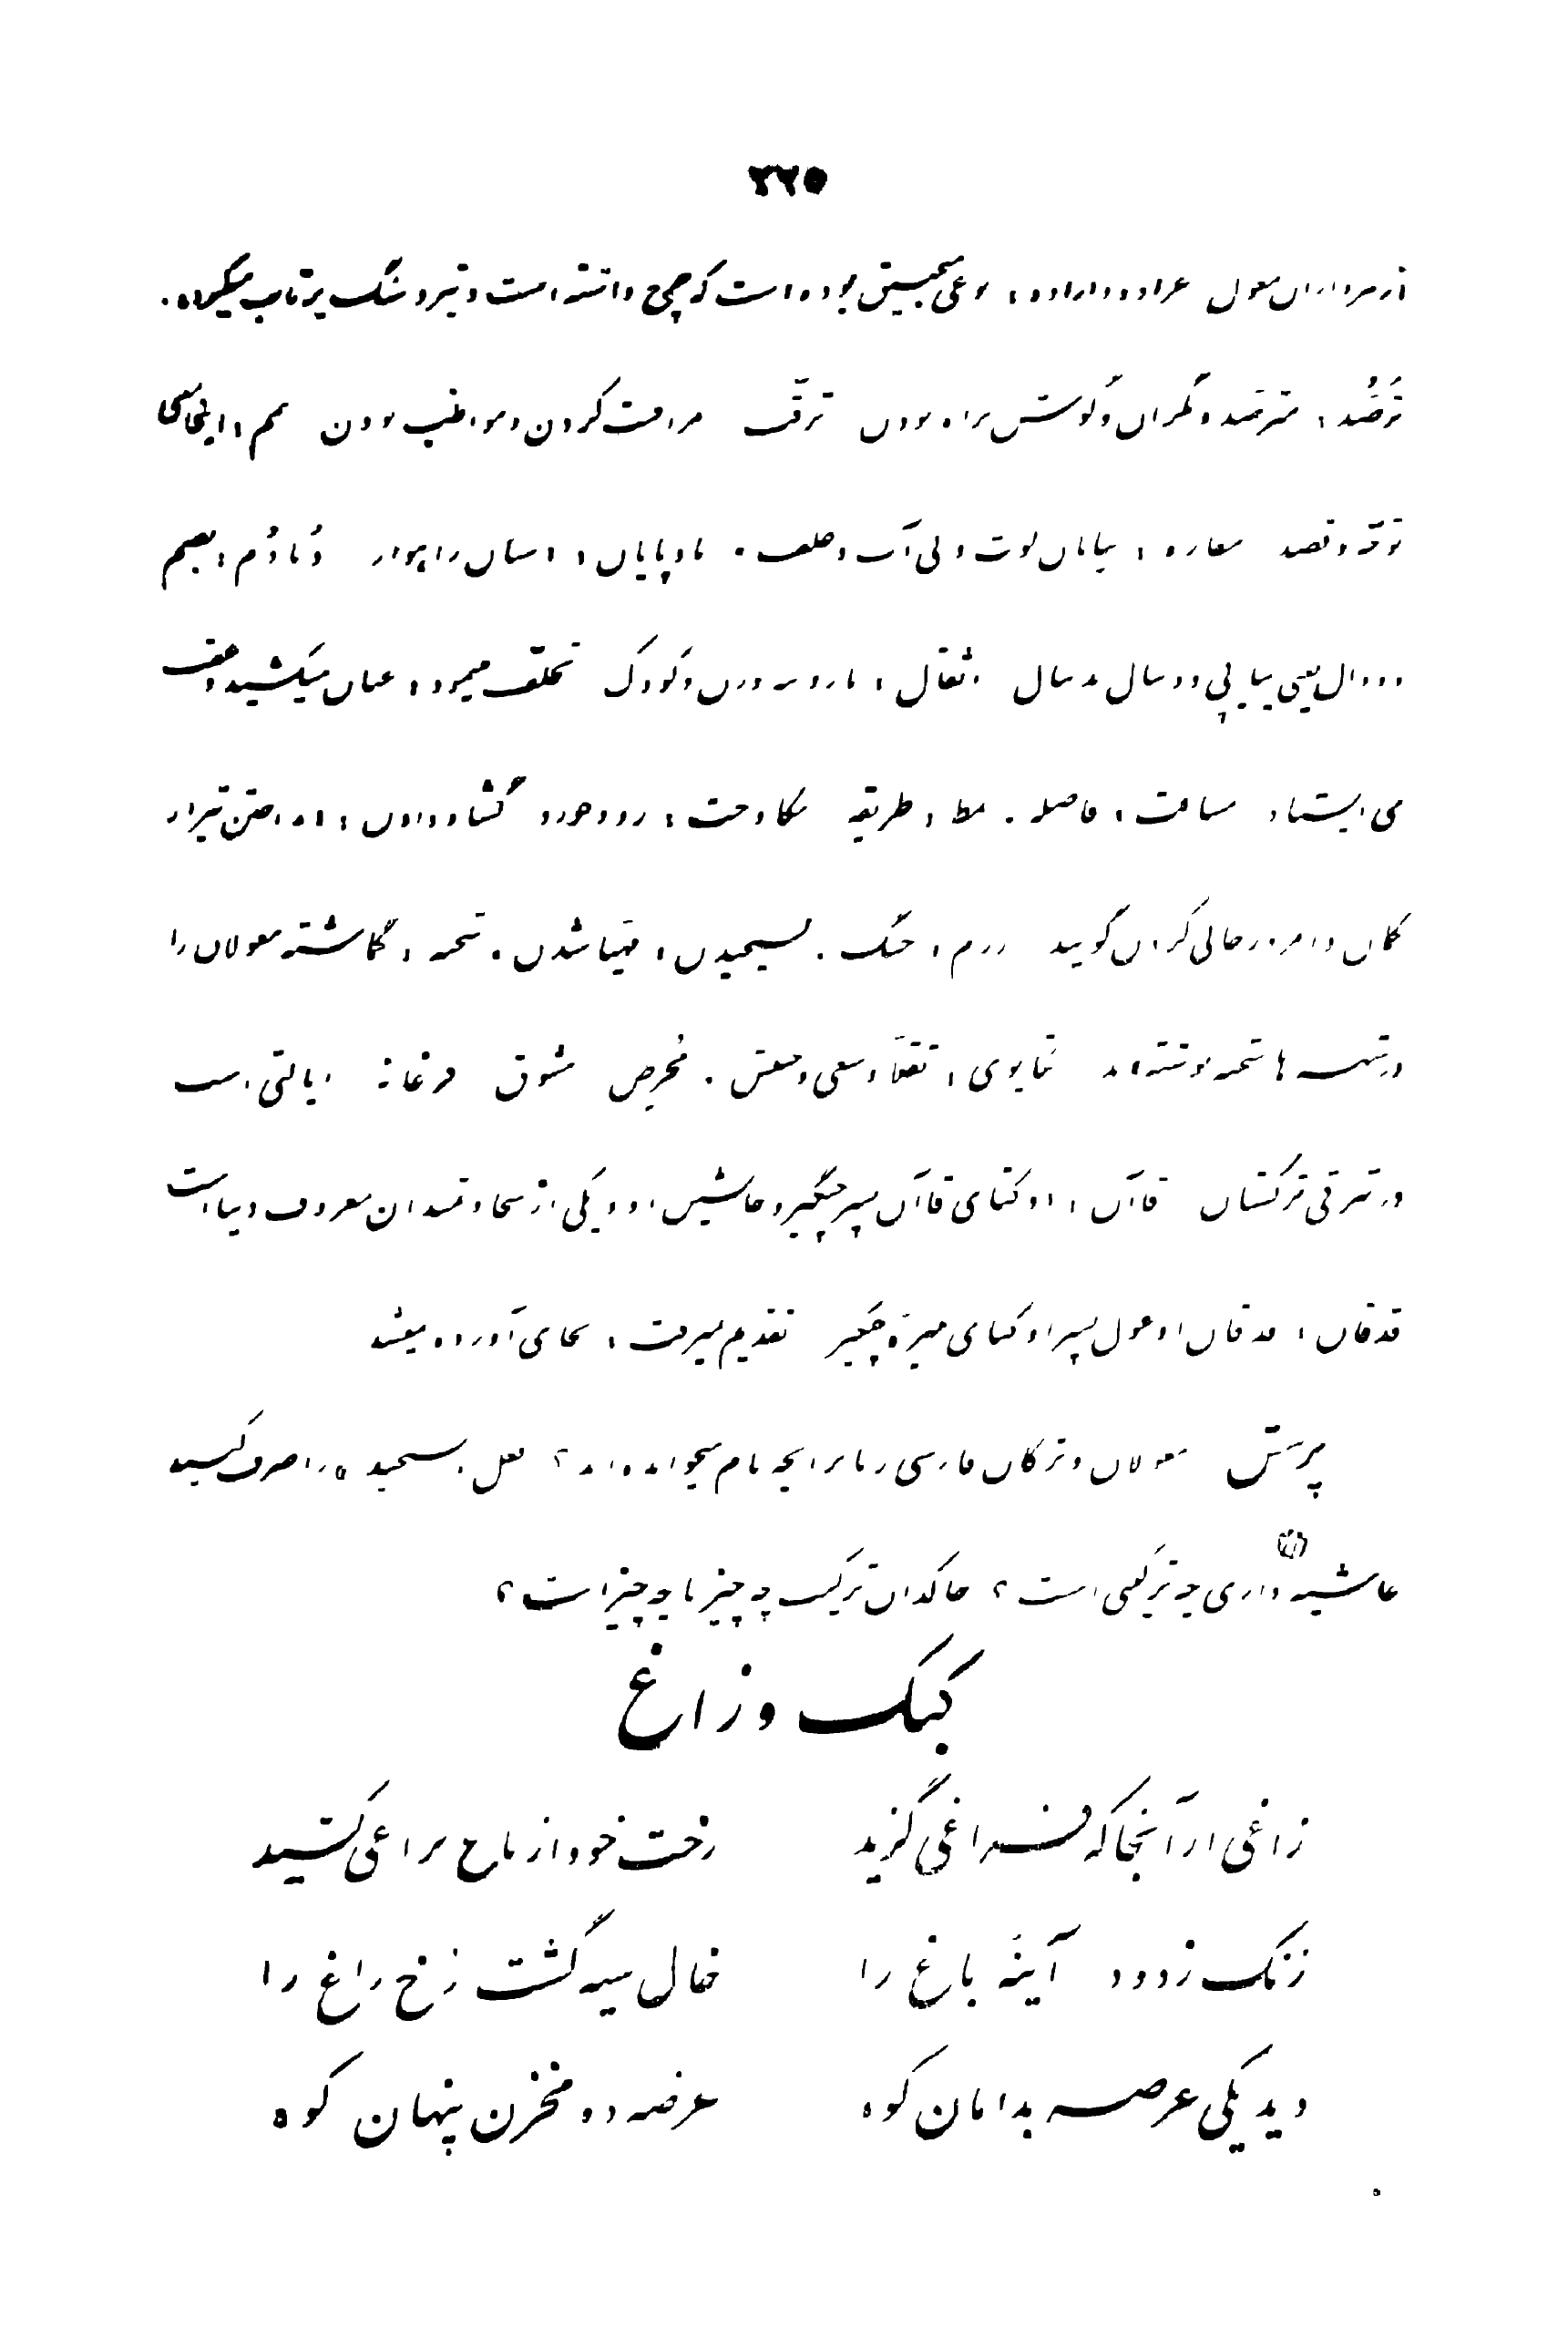 ۳۶۵
از سرداران مغول عراده و اراده، نوعی منجنیق بوده است که چرخ داشته است و تیر و سنگ پرتاب میکرده.
ترصّد، مترصد و نگران و گوش براه بودن ترقّب مراقبت کردن و مواظب بودن
توقّع و قصد مفازه، بیابان لوت و بی آب و علف. بادپایان، اسبان راهوار دُمادُم، بضم
دو دال یعنی پیاپی و دنبال دنبال اثقال، بار و بنه و زن و کودک تخلّف مینمود، عنان میکشید و عقب
می ایستاد مسافت، فاصله. نمط، طریقه مکاوحت، زد و خورد گشاد دادن، انداختن تیر از
کمان و امروز خالی کردن گویند رزم، جنگ. بسیجیدن، مهیا شدن. شحنه، گماشته مغولان را
در شهرها شحنه نوشته‌اند تکاپوی، تقلّا و سعی و تفتیش. تحریص تشویق فرغانه ایالتی است
در شرقی ترکستان قاآن، اوکتای قاآن پسر چنگیز و جانشین او و یکی از سخاوتمندان معروف دنیاست
قدقان، قدقان اوغول پسر اوکتای نبیرهٔ چنگیز تقدیم میرفت، بجای آورده میشد
پرسش مغولان و ترکان فارسی زبان را بچه نام میخوانده‌اند؟ فعل بسیجیدن را صرف کنید
حاشیه داری چه ترکیبی است؟ خاکدان ترکیب چه چیز با چه چیز است؟
کبک و زاغ
زاغی از آنجا که فراغی گزید رخت خود از باغ براغی کشید
زنگ زدود آینهٔ باغ را خال سیه گشت رخ راغ را
دید یکی عرصه بدامان کوه عرضه ده مخزن پنهان کوه